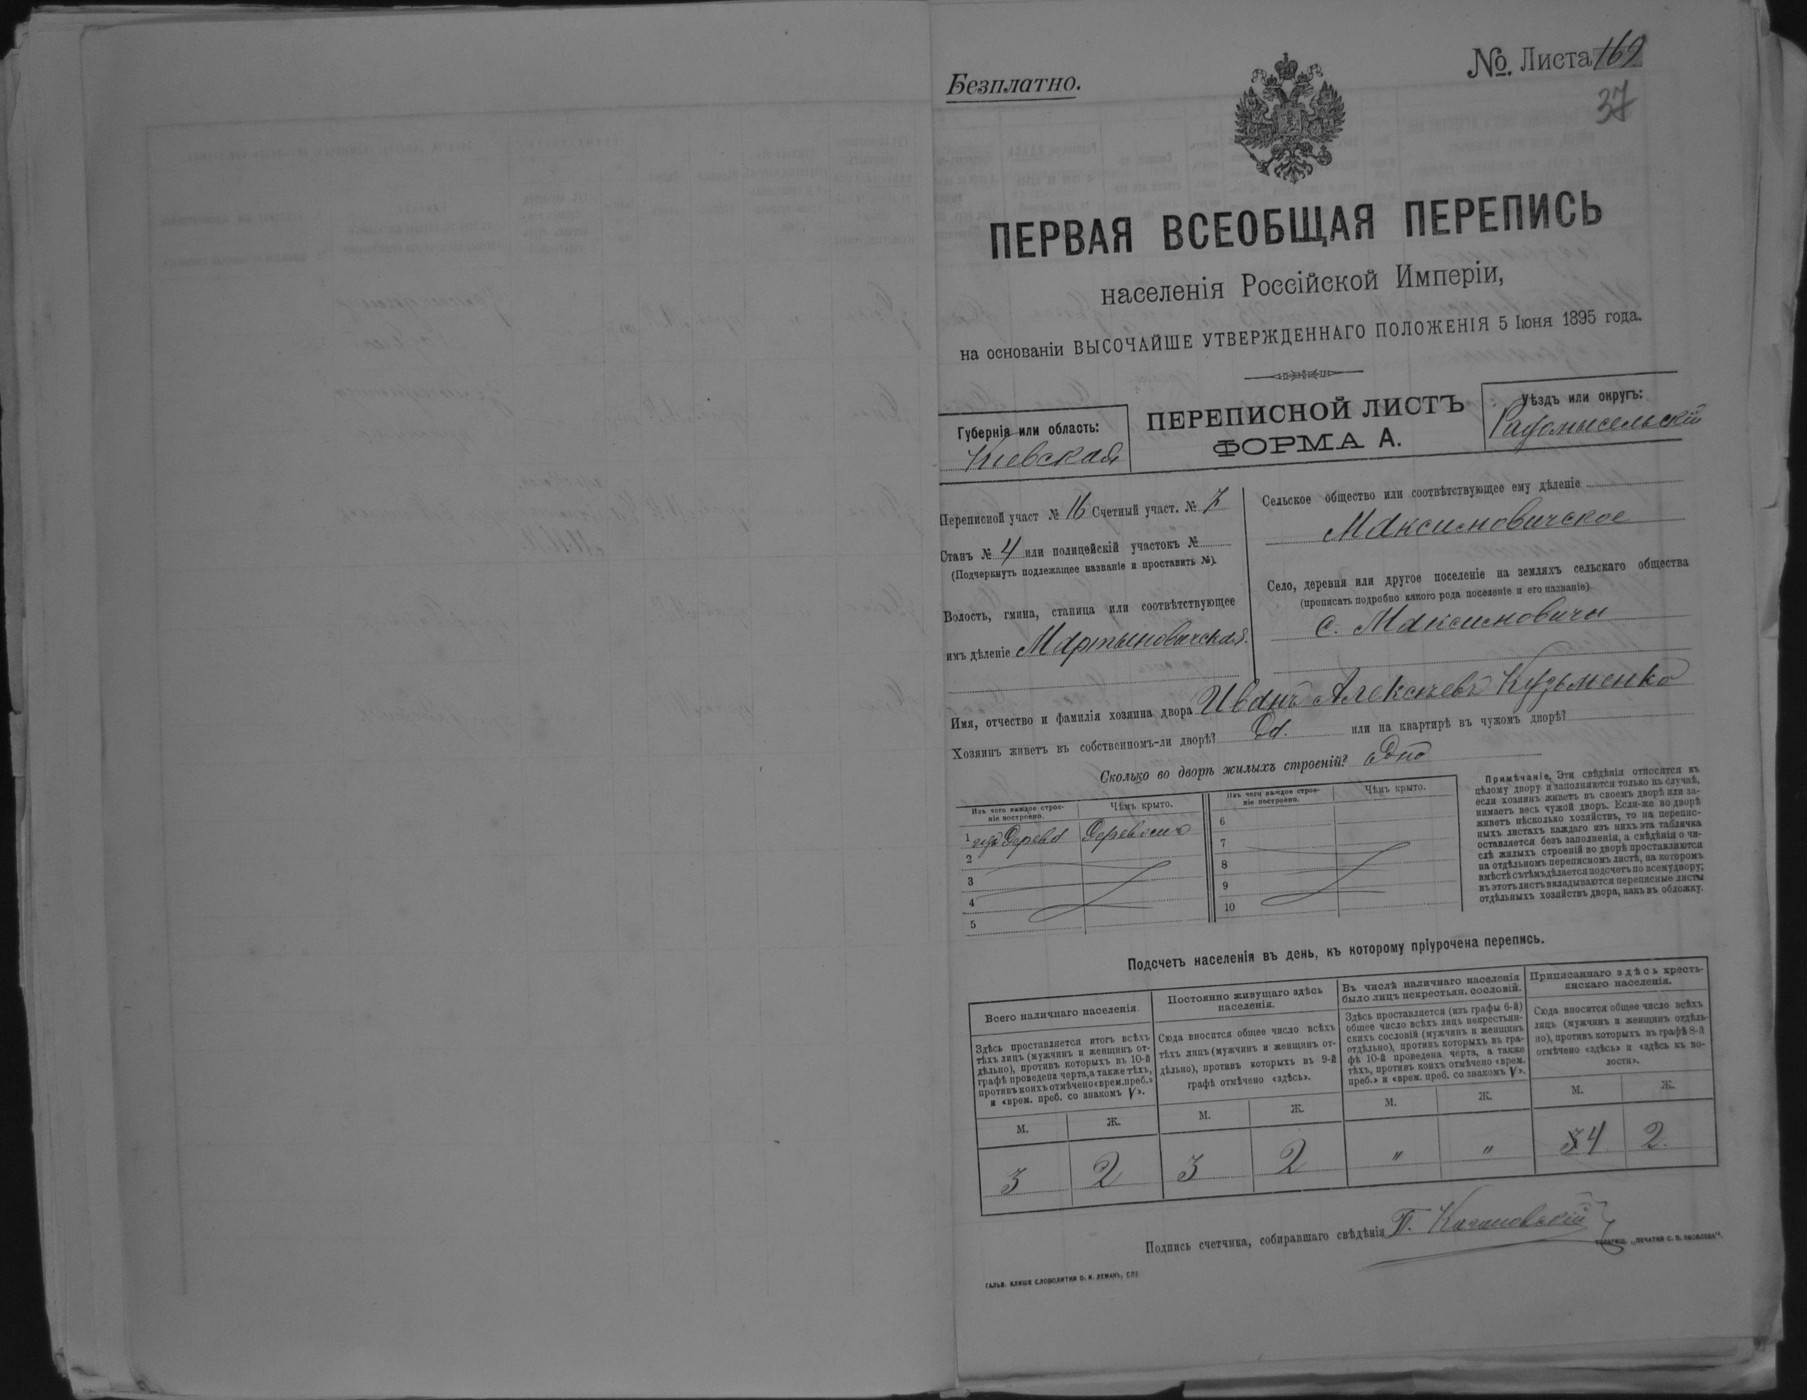 Безплатно.
№. Листа 169
37
ПЕРВАЯ ВСЕОБЩАЯ ПЕРЕПИСЬ
населенія Россійской Имперіи,
на основаніи ВЫСОЧАЙШЕ УТВЕРЖДЕННАГО ПОЛОЖЕНІЯ 5 Іюня 1895 года.
Губернія или область:
Кіевская
ПЕРЕПИСНОЙ ЛИСТЪ
ФОРМА А.
Уѣздъ или округъ:
Радомысльскій
Переписной участ № 16 Счетный участ. № 7
Станъ № 4 или полицейскій участокъ №
(Подчеркнуть подлежащее названіе и проставить №).
Волость, гмина, станица или соотвѣтствующее
имъ дѣленіе Мартыновичская.
Сельское общество или соотвѣтствующее ему дѣленіе
Максимовичское
Село, деревня или другое поселеніе на земляхъ сельскаго общества
(прописать подробно какого рода поселеніе и его названіе)
с. Максимовичи
Имя, отчество и фамилія хозяина двора Иванъ Алексѣевъ Кузьменко
Хозяинъ живетъ въ собственномъ-ли дворѣ? Да. или на квартирѣ въ чужомъ дворѣ?
Сколько во дворѣ жилыхъ строеній? Одно
Изъ чего каждое строе-
ніе построено.
Чѣмъ крыто.
1 изъ Дерева Деревомъ
2
3
4
5
Изъ чего каждое строе-
ніе построено.
Чѣмъ крыто.
6
7
8
9
10
Примѣчаніе. Эти свѣдѣнія относятся къ
цѣлому двору и заполняются только въ случаѣ,
если хозяинъ живетъ въ своемъ дворѣ или за-
нимаетъ весь чужой дворъ. Если-же во дворѣ
живетъ нѣсколько хозяйствъ, то на перепис-
ныхъ листахъ каждаго изъ нихъ эта табличка
оставляется безъ заполненія, а свѣдѣнія о чи-
слѣ жилыхъ строеній во дворѣ проставляются
на отдѣльномъ переписномъ листѣ, на которомъ
вмѣстѣ съ тѣмъ дѣлается подсчетъ по всему двору;
въ этотъ листъ вкладываются переписные листы
отдѣльныхъ хозяйствъ двора, какъ въ обложку.
Подсчетъ населенія въ день, къ которому пріурочена перепись.
Всего наличнаго населенія.
Здѣсь проставляется итогъ всѣхъ
тѣхъ лицъ (мужчинъ и женщинъ от-
дѣльно), противъ которыхъ въ 10-й
графѣ проведена черта, а также тѣхъ,
противъ коихъ отмѣчено «врем. преб.»
и «врем. преб. со знакомъ V».
М. Ж.
3 2
Постоянно живущаго здѣсь
населенія.
Сюда вносится общее число всѣхъ
тѣхъ лицъ (мужчинъ и женщинъ от-
дѣльно), противъ которыхъ въ 9-й
графѣ отмѣчено «здѣсь».
М. Ж.
3 2
Въ числѣ наличнаго населенія
было лицъ некрестьян. сословій.
Здѣсь проставляется (изъ графы 6-й)
общее число всѣхъ лицъ некрестьян-
скихъ сословій (мужчинъ и женщинъ
отдѣльно), противъ которыхъ въ гра-
фѣ 10-й проведена черта, а также
тѣхъ, противъ коихъ отмѣчено «врем.
преб.» и «врем. преб. со знакомъ V».
М. Ж.
" "
Приписаннаго здѣсь кресть-
янскаго населенія.
Сюда вносится общее число всѣхъ
лицъ (мужчинъ и женщинъ отдѣль-
но), противъ которыхъ въ графѣ 8-й
отмѣчено «здѣсь» и «здѣсь къ во-
лости».
М. Ж.
4 2.
Подпись счетчика, собиравшаго свѣдѣнія
ГАЛЬВ. КЛИШЕ СЛОВОЛИТНИ О. И. ЛЕМАНЪ, СПБ
ТОВАРИЩ. „ПЕЧАТНЯ С. П. ЯКОВЛЕВА".